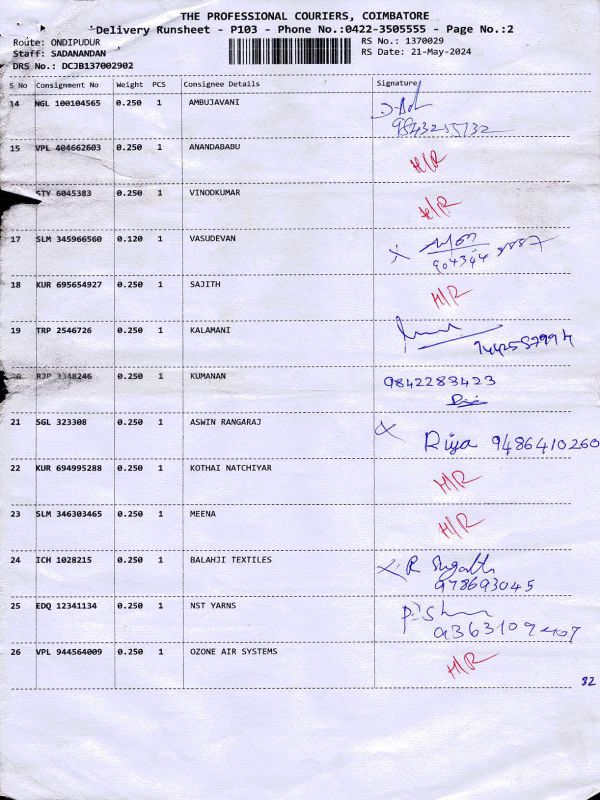 THE PROFESSIONAL COURIERS, COIMBATORE
Delivery Runsheet - P103 - Phone No.:0422-3505555 - Page No.:2
Route: ONDIPUDUR RS No.: 1370029
Staff: SADANANDAN RS Date: 21-May-2024
DRS No.: DCJB137002902
S No Consignment No Weight PCS Consignee Details Signature
14 NGL 100104565 0.250 1 AMBUJAVANI
15 VPL 404662603 0.250 1 ANANDABABU H/R
STY 6045383 0.250 1 VINODKUMAR H/R
17 SLM 345966560 0.120 1 VASUDEVAN
18 KUR 695654927 0.250 1 SAJITH H/R
19 TRP 2546726 0.250 1 KALAMANI
20 RJP 3348246 0.250 1 KUMANAN 9842283423
21 SGL 323308 0.250 1 ASWIN RANGARAJ Riya 9486410260
22 KUR 694995288 0.250 1 KOTHAI NATCHIYAR H/R
23 SLM 346303465 0.250 1 MEENA H/R
24 ICH 1028215 0.250 1 BALAHJI TEXTILES R
978693045
25 EDQ 12341134 0.250 1 NST YARNS
26 VPL 944564009 0.250 1 OZONE AIR SYSTEMS H/R
32